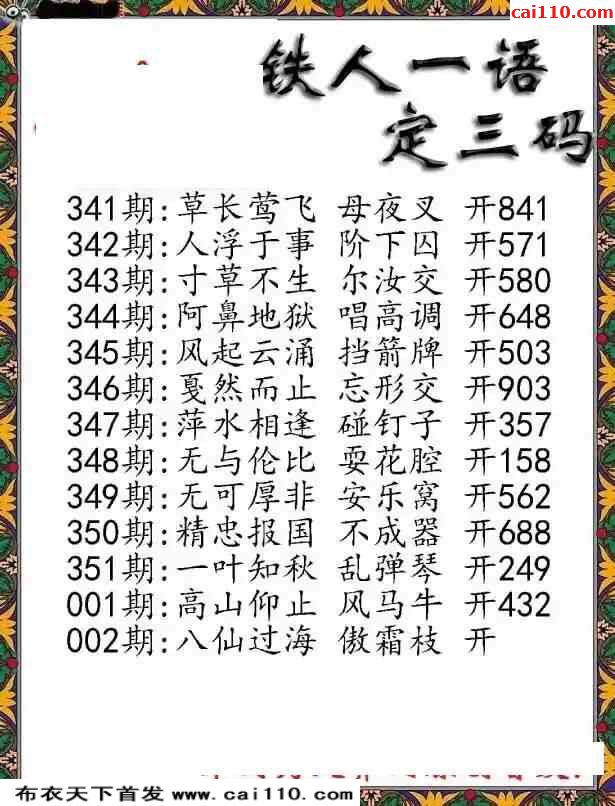 cai110.com
铁人一语
定三码
341期:草长莺飞 母夜叉 开841
342期:人浮于事 阶下囚 开571
343期:寸草不生 尔汝交 开580
344期:阿鼻地狱 唱高调 开648
345期:风起云涌 挡箭牌 开503
346期:戛然而止 忘形交 开903
347期:萍水相逢 碰钉子 开357
348期:无与伦比 耍花腔 开158
349期:无可厚非 安乐窝 开562
350期:精忠报国 不成器 开688
351期:一叶知秋 乱弹琴 开249
001期:高山仰止 风马牛 开432
002期:八仙过海 傲霜枝 开
布衣天下首发 www.cai110.com